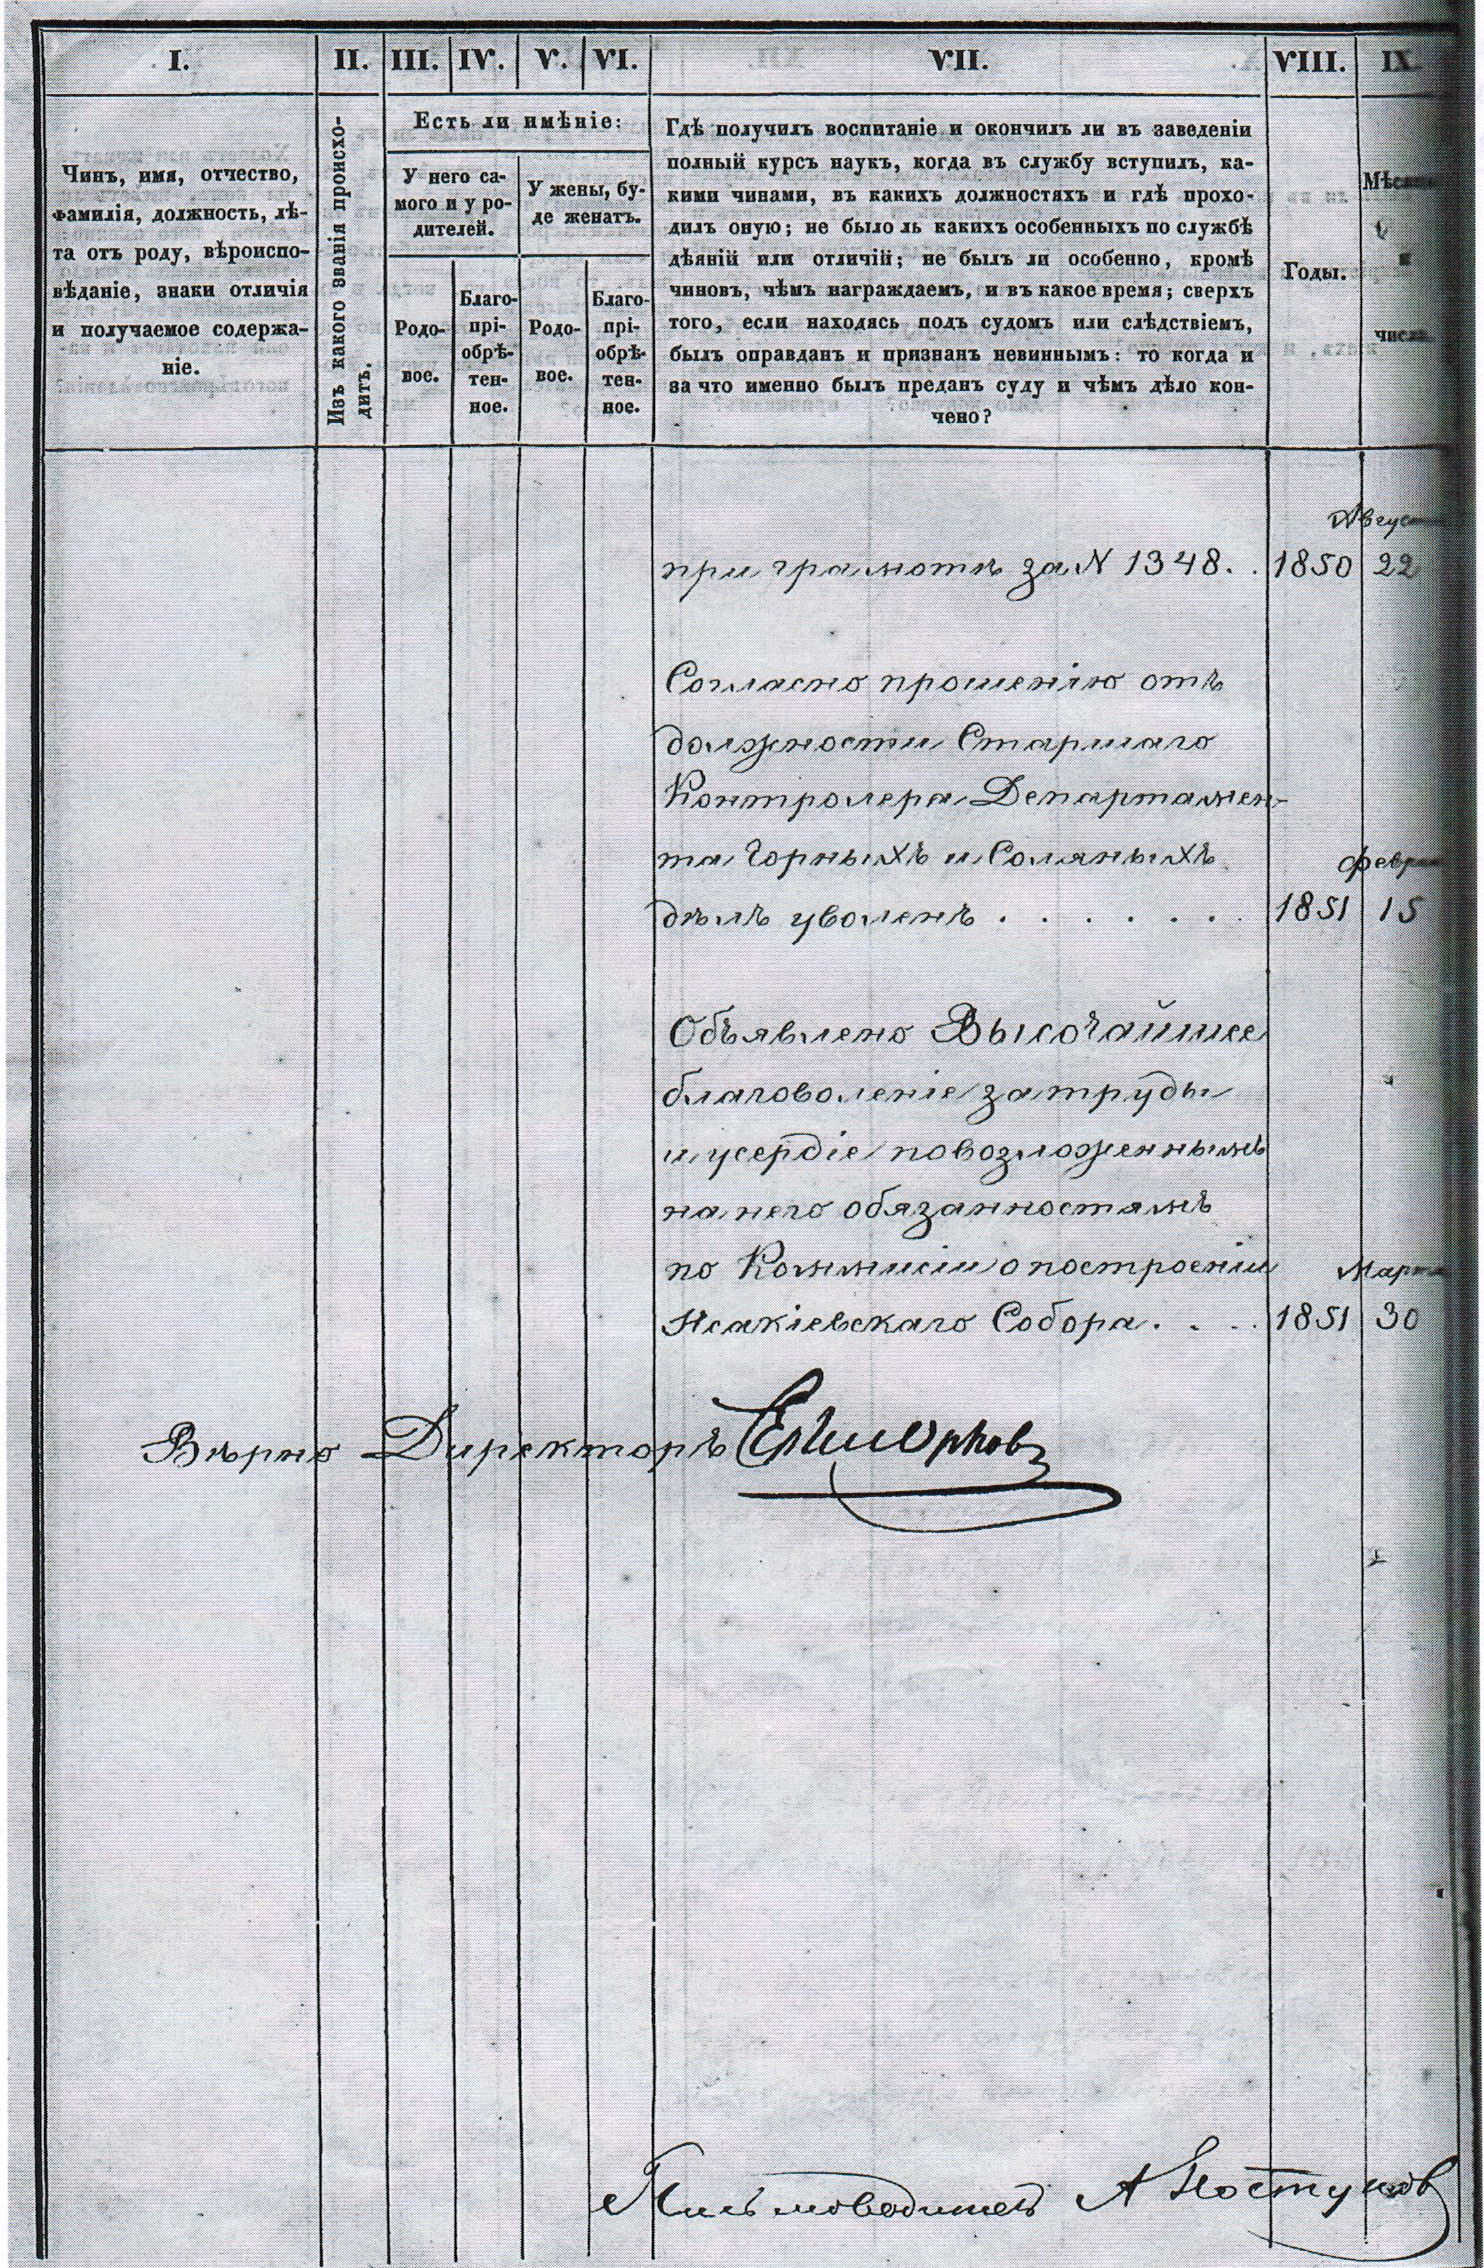 I.
II.
III.
IV.
V.
VI.
VII.
VIII.
IX.
Чинъ, имя, отчество,
фамилія, должность, лѣ-
та отъ роду, вѣроиспо-
вѣданіе, знаки отличія
и получаемое содержа-
ніе.
Изъ какого званія происхо-
дитъ.
Есть ли имѣніе:
У него са-
мого и у ро-
дителей.
У жены, бу-
де женатъ.
Родо-
вое.
Благо-
прі-
обрѣ-
тен-
ное.
Родо-
вое.
Благо-
прі-
обрѣ-
тен-
ное.
Гдѣ получилъ воспитаніе и окончилъ ли въ заведеніи
полный курсъ наукъ, когда въ службу вступилъ, ка-
кими чинами, въ какихъ должностяхъ и гдѣ прохо-
дилъ оную; не было ль какихъ особенныхъ по службѣ
дѣяній или отличій; не былъ ли особенно, кромѣ
чиновъ, чѣмъ награждаемъ, и въ какое время; сверхъ
того, если находясь подъ судомъ или слѣдствіемъ,
былъ оправданъ и признанъ невиннымъ: то когда и
за что именно былъ преданъ суду и чѣмъ дѣло кон-
чено?
Годы.
и
числа.
при грамотѣ за N 1348. . 1850 22
Согласно прошенію отъ
должности Старшаго
Контролера Департамен-
та Горныхъ и Соляныхъ
дѣлъ уволенъ . . . . . . 1851 15
Объявлено Высочайшее
благоволеніе за труды
и усердіе по возложеннымъ
на него обязанностямъ
по Коммисіи о построеніи
Исакіевскаго Собора. . . . 1851 30
Вѣрно Директоръ
Письмоводитель А